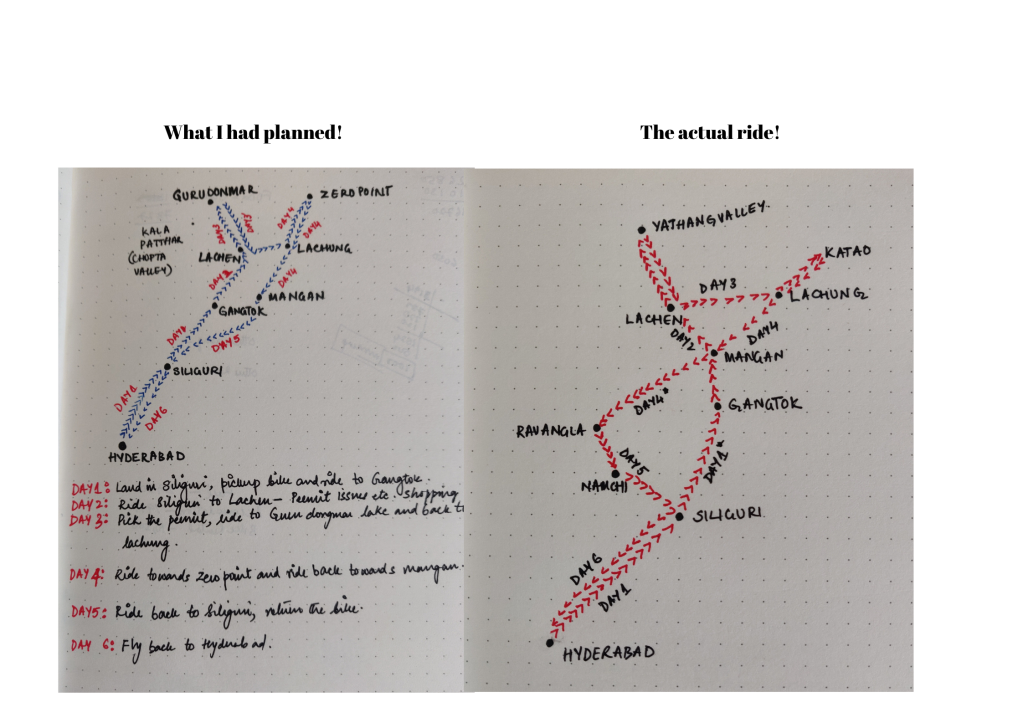 What I had planned!
The actual ride!
GURUDONMAR
ZERO POINT
KALA
PATTHAR
(CHOPTA
VALLEY)
DAY3
DAY3
DAY4
DAY4
LACHEN
LACHUNG
DAY2
DAY4
MANGAN
GANGTOK
DAY1
DAY5
SILIGURI
DAY1
DAY6
HYDERABAD
DAY1: Land in Siliguri, pickup bike and ride to Gangtok.
DAY2: Ride Siliguri to Lachen - Permit issues etc. shopping
DAY 3: Pick the permit, ride to Guru dongmar lake and back t
lachung.
DAY 4: Ride towards Zero point and ride back towards mangan.
DAY5: Ride back to Siliguri, return the bike.
DAY 6: Fly back to Hyderabad.
YATHANGVALLEY.
KATAO
DAY3
LACHUNG
LACHEN
DAY2
DAY4
MANGAN
DAY4*
GANGTOK
RAVANGLA
DAY5
DAY1*
NAMCHI
SILIGURI
DAY6
DAY1
HYDERABAD